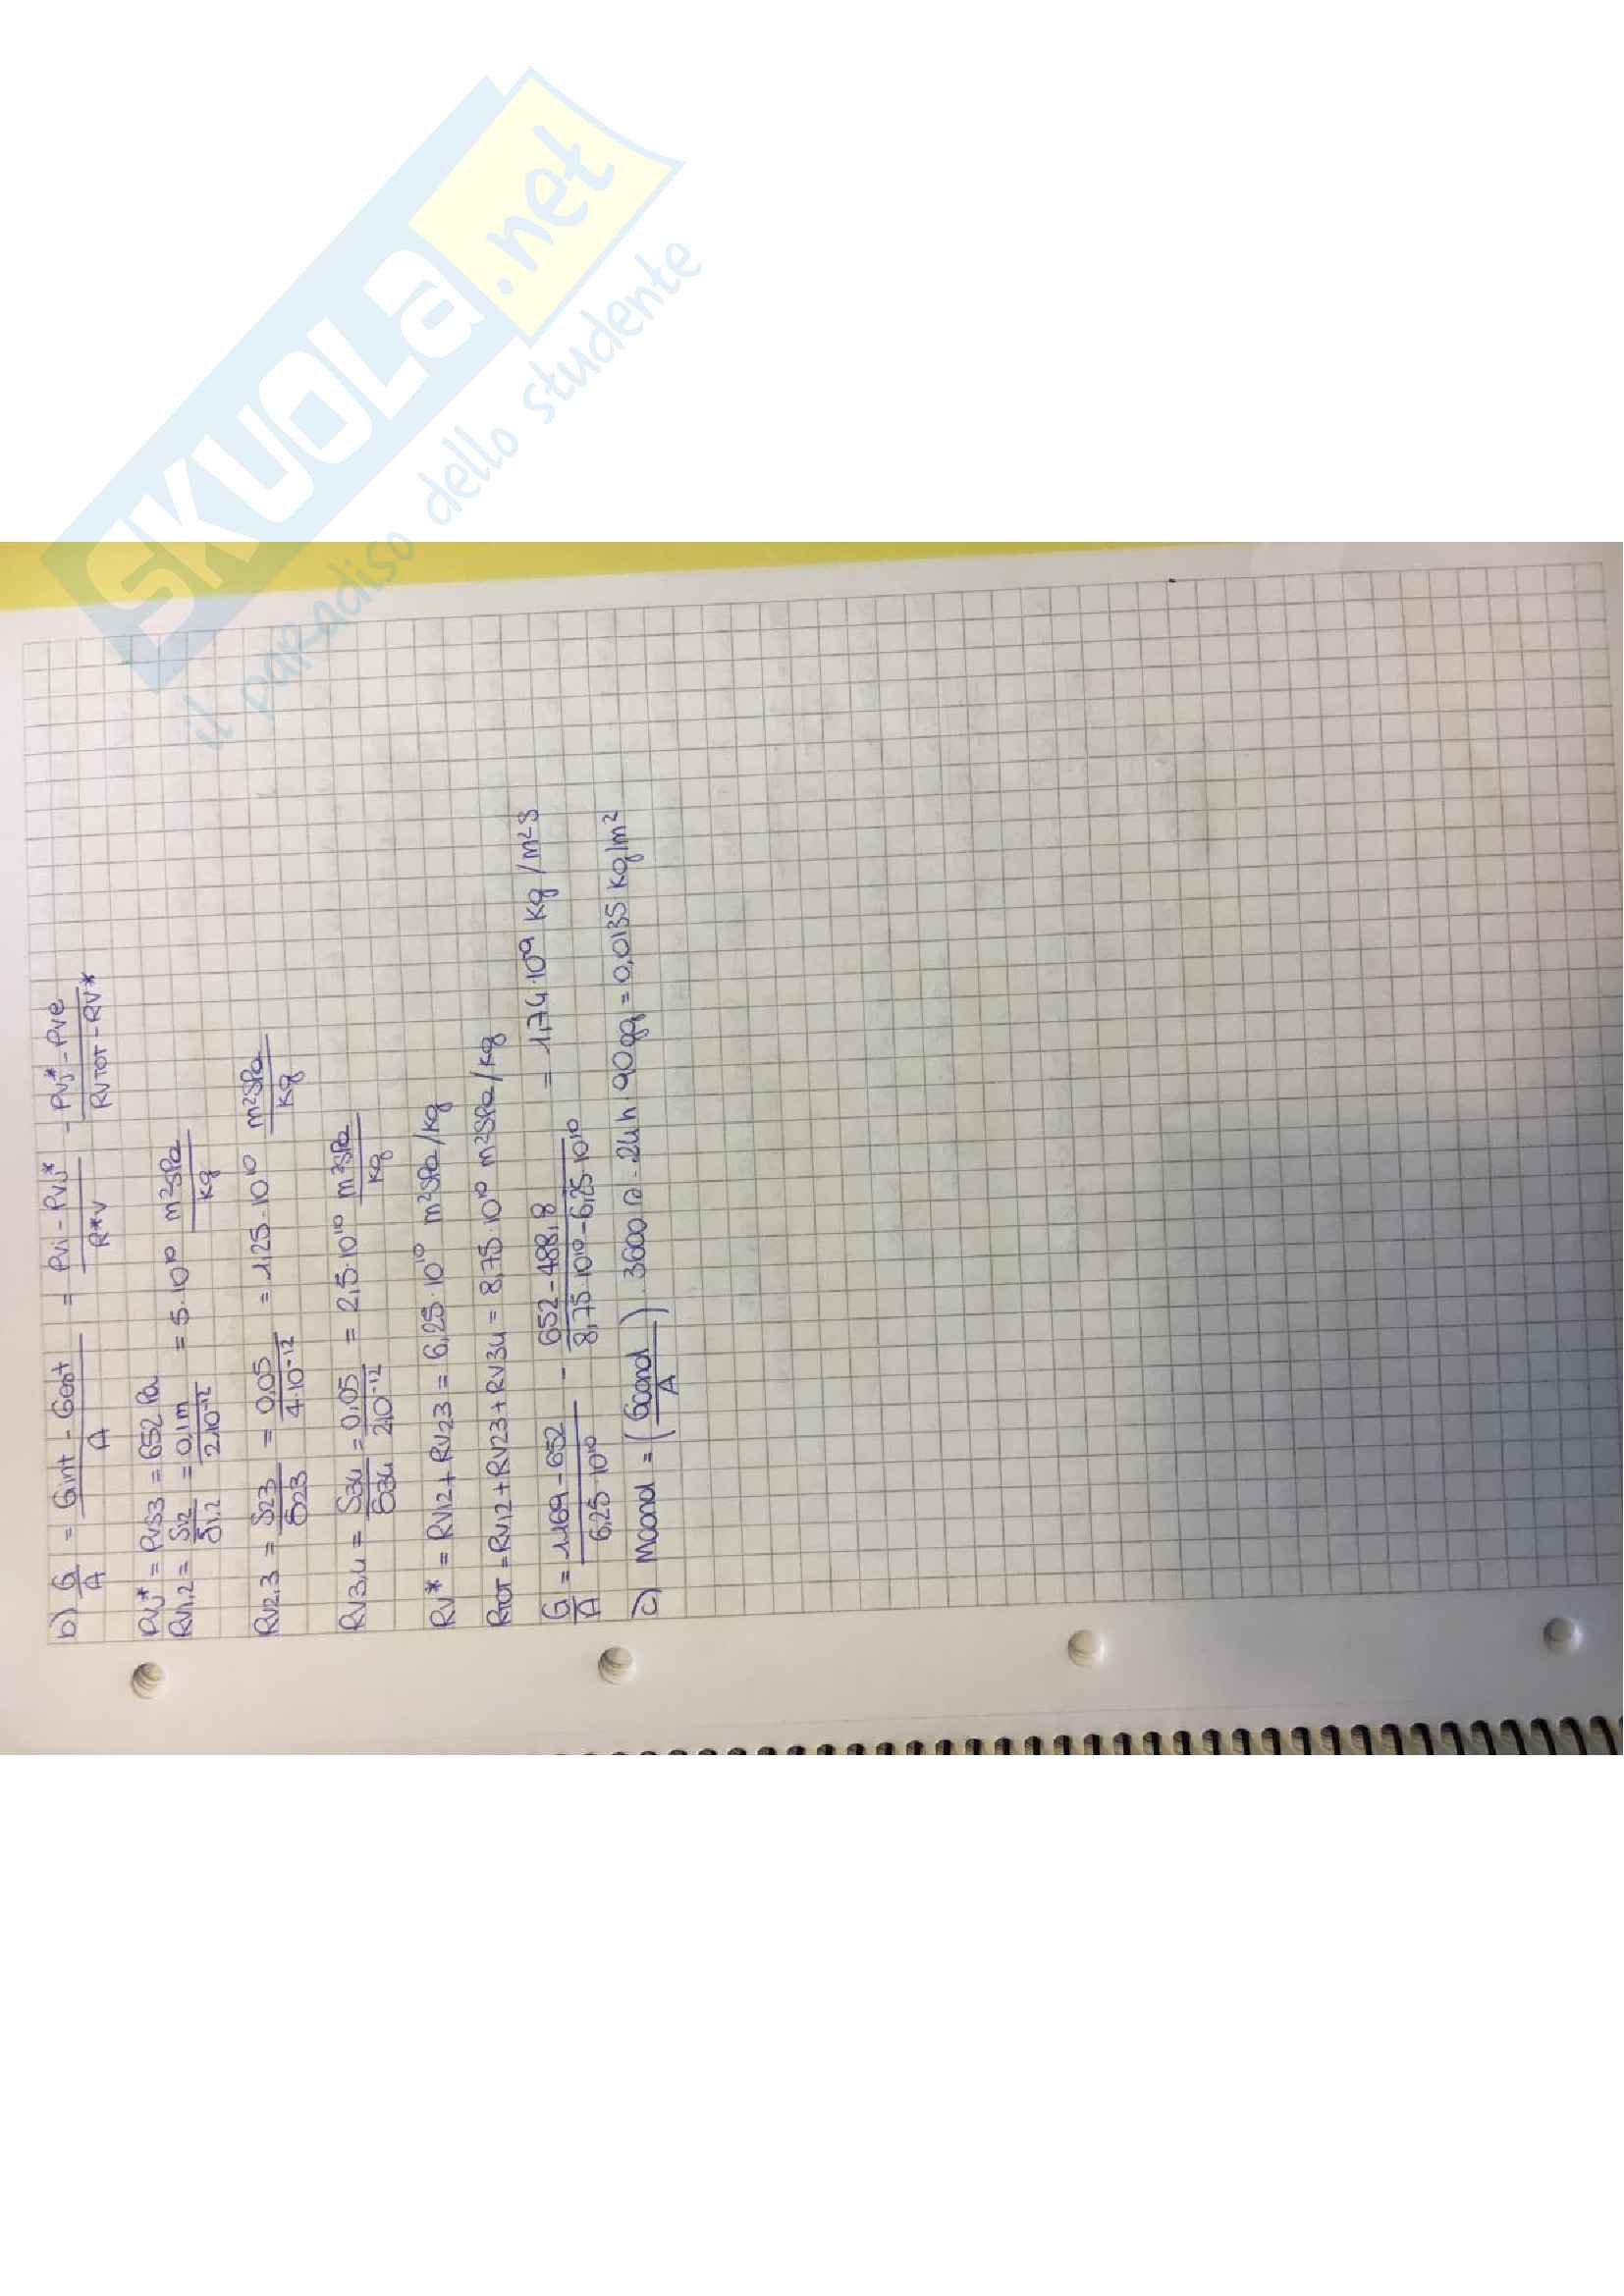 SKUOLA.net
il paradiso dello studente
b) G/A = (Gint - Gest)/A = (Pvi - Pvj*)/R*v - (Pvj* - Pve)/(RvTOT - Rv*)
Pvj* = Pvs3 = 652 Pa
Rv1,2 = S12/δ1,2 = 0,1m/2·10^-12 = 5·10^10 m²sPa/kg
Rv2,3 = S23/δ23 = 0,05/4·10^-12 = 1,25·10^10 m²sPa/kg
Rv3,4 = S34/δ34 = 0,05/2·10^-12 = 2,5·10^10 m²sPa/kg
Rv* = Rv12 + Rv23 = 6,25·10^10 m²sPa/kg
RTOT = Rv12 + Rv23 + Rv34 = 8,75·10^10 m²sPa/kg
G/A = (1169 - 652)/(6,25·10^10) - (652 - 488,8)/(8,75·10^10 - 6,25·10^10) = 1,74·10^9 kg/m²s
c) mcond = (Gcond/A) · 3600 · 24h · 90gg = 0,0135 kg/m²